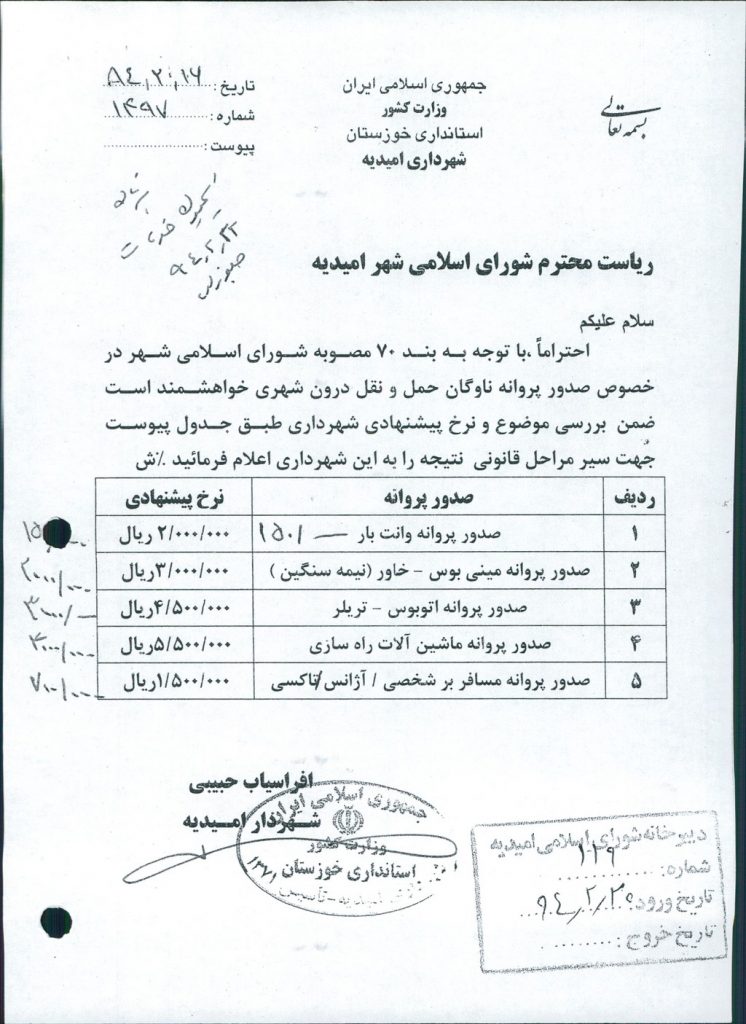 بسمه تعالی
جمهوری اسلامی ایران
وزارت کشور
استانداری خوزستان
شهرداری امیدیه
تاریخ : ۹۴،۲،۱۶
شماره : ۱۴۹۷
پیوست :
۹۴،۲،۲۲
ریاست محترم شورای اسلامی شهر امیدیه
سلام علیکم
احتراماً ،با توجه به بند ۷۰ مصوبه شورای اسلامی شهر در
خصوص صدور پروانه ناوگان حمل و نقل درون شهری خواهشمند است
ضمن بررسی موضوع و نرخ پیشنهادی شهرداری طبق جدول پیوست
و
جهت سیر مراحل قانونی نتیجه را به این شهرداری اعلام فرمائید ٪ش
ردیف صدور پروانه نرخ پیشنهادی
۱ صدور پروانه وانت بار ۱۵۰/ — ۲/۰۰۰/۰۰۰ ریال
۲ صدور پروانه مینی بوس - خاور (نیمه سنگین ) ۳/۰۰۰/۰۰۰ریال ۲۰۰۰/۰۰۰
۳ صدور پروانه اتوبوس - تریلر ۴/۵۰۰/۰۰۰ریال ۳۰۰۰/—
۴ صدور پروانه ماشین آلات راه سازی ۵/۵۰۰/۰۰۰ریال ۴۰۰۰/۰۰۰
۵ صدور پروانه مسافر بر شخصی / آژانس/تاکسی ۱/۵۰۰/۰۰۰ریال ۷۰۰/۰۰۰
افراسیاب حبیبی
شهردار امیدیه
جمهوری اسلامی ایران
وزارت کشور
استانداری خوزستان
دبیرخانه شورای اسلامی امیدیه
شماره: ۱۲۹
تاریخ ورود: ۹۴/۲/۲۰
تاریخ خروج :